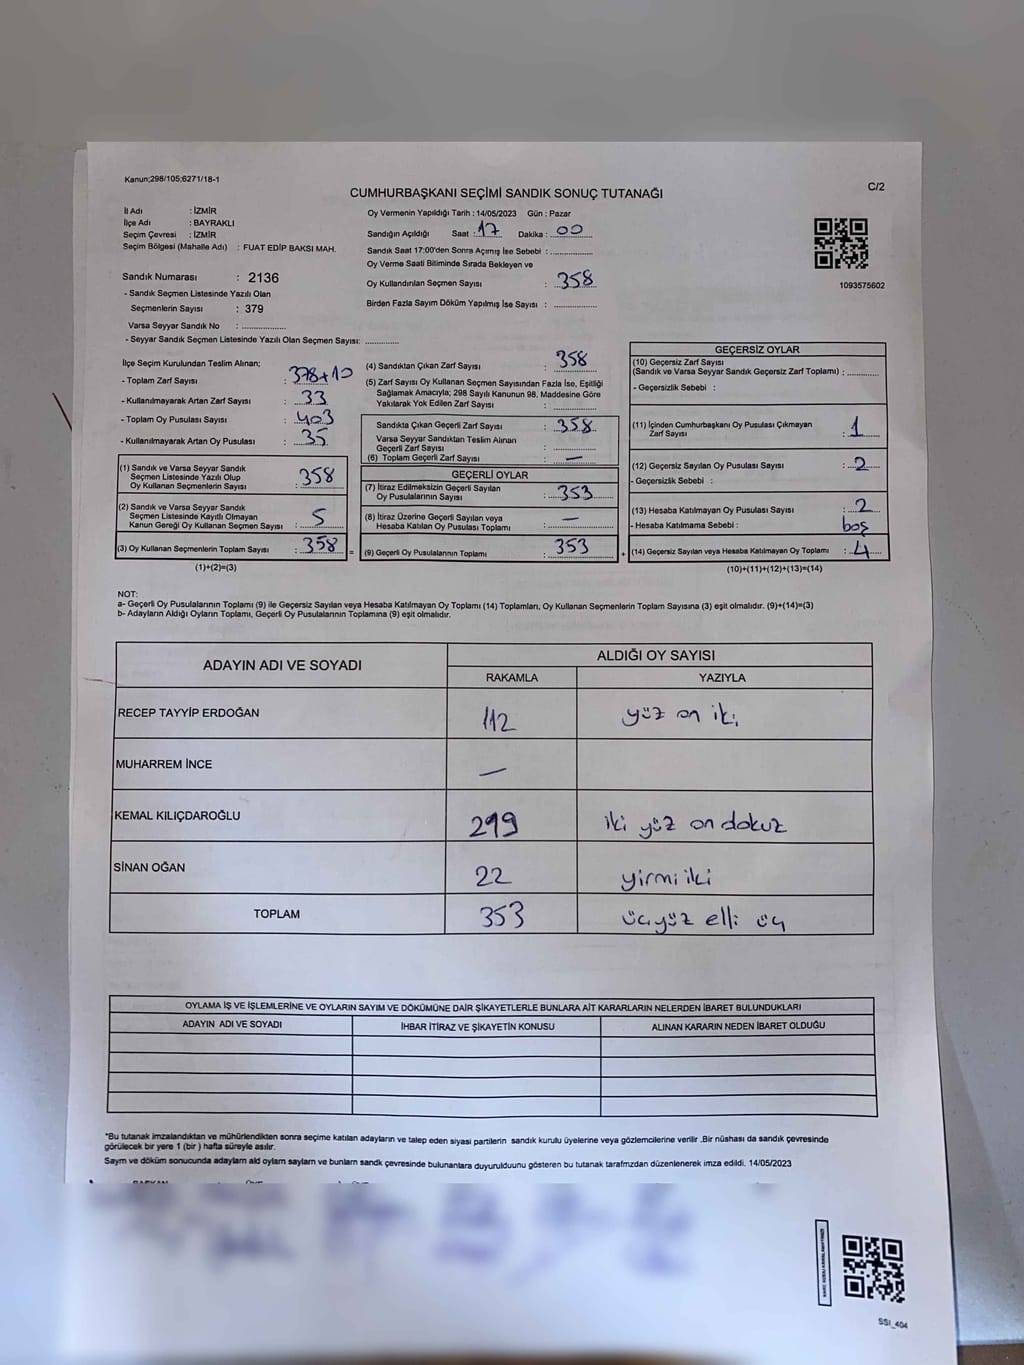 Kanun;298/105;6271/18-1
C/2
CUMHURBAŞKANI SEÇİMİ SANDIK SONUÇ TUTANAĞI
İl Adı : İZMİR
İlçe Adı : BAYRAKLI
Seçim Çevresi : İZMİR
Seçim Bölgesi (Mahalle Adı) : FUAT EDİP BAKSI MAH.
Sandık Numarası : 2136
- Sandık Seçmen Listesinde Yazılı Olan
Seçmenlerin Sayısı : 379
Varsa Seyyar Sandık No :
- Seyyar Sandık Seçmen Listesinde Yazılı Olan Seçmen Sayısı:
Oy Vermenin Yapıldığı Tarih : 14/05/2023 Gün : Pazar
Sandığın Açıldığı Saat : 17 Dakika : 00
Sandık Saat 17:00'den Sonra Açımış İse Sebebi :
Oy Verme Saati Bitiminde Sırada Bekleyen ve
Oy Kullandırılan Seçmen Sayısı : 358
Birden Fazla Sayım Döküm Yapılmış İse Sayısı :
1093575602
İlçe Seçim Kurulundan Teslim Alınan;
- Toplam Zarf Sayısı : 378+10
- Kullanılmayarak Artan Zarf Sayısı : 33
- Toplam Oy Pusulası Sayısı : 403
- Kullanılmayarak Artan Oy Pusulası : 35
(1) Sandık ve Varsa Seyyar Sandık
Seçmen Listesinde Yazılı Olup
Oy Kullanan Seçmenlerin Sayısı : 358
(2) Sandık ve Varsa Seyyar Sandık
Seçmen Listesinde Kayıtlı Olmayan
Kanun Gereği Oy Kullanan Seçmen Sayısı : 5
(3) Oy Kullanan Seçmenlerin Toplam Sayısı : 358 =
(1)+(2)=(3)
(4) Sandıktan Çıkan Zarf Sayısı : 358
(5) Zarf Sayısı Oy Kullanan Seçmen Sayısından Fazla İse, Eşitliği
Sağlamak Amacıyla; 298 Sayılı Kanunun 98. Maddesine Göre
Yakılarak Yok Edilen Zarf Sayısı :
Sandıkta Çıkan Geçerli Zarf Sayısı : 358
Varsa Seyyar Sandıktan Teslim Alınan
Geçerli Zarf Sayısı :
(6) Toplam Geçerli Zarf Sayısı : —
GEÇERLİ OYLAR
(7) İtiraz Edilmeksizin Geçerli Sayılan
Oy Pusulalarının Sayısı : 353
(8) İtiraz Üzerine Geçerli Sayılan veya
Hesaba Katılan Oy Pusulası Toplamı : —
(9) Geçerli Oy Pusulalarının Toplamı : 353 +
GEÇERSİZ OYLAR
(10) Geçersiz Zarf Sayısı
(Sandık ve Varsa Seyyar Sandık Geçersiz Zarf Toplamı) :
- Geçersizlik Sebebi :
(11) İçinden Cumhurbaşkanı Oy Pusulası Çıkmayan
Zarf Sayısı : 1
(12) Geçersiz Sayılan Oy Pusulası Sayısı : 2
- Geçersizlik Sebebi :
(13) Hesaba Katılmayan Oy Pusulası Sayısı : 2
- Hesaba Katılmama Sebebi : boş
(14) Geçersiz Sayılan veya Hesaba Katılmayan Oy Toplamı : 4
(10)+(11)+(12)+(13)=(14)
NOT:
a- Geçerli Oy Pusulalarının Toplamı (9) ile Geçersiz Sayılan veya Hesaba Katılmayan Oy Toplamı (14) Toplamları, Oy Kullanan Seçmenlerin Toplam Sayısına (3) eşit olmalıdır. (9)+(14)=(3)
b- Adayların Aldığı Oyların Toplamı, Geçerli Oy Pusulalarının Toplamına (9) eşit olmalıdır.
ADAYIN ADI VE SOYADI
ALDIĞI OY SAYISI
RAKAMLA YAZIYLA
RECEP TAYYİP ERDOĞAN 112 yüz on iki
MUHARREM İNCE —
KEMAL KILIÇDAROĞLU 219 iki yüz on dokuz
SİNAN OĞAN 22 yirmi iki
TOPLAM 353 üçyüz elli üç
OYLAMA İŞ VE İŞLEMLERİNE VE OYLARIN SAYIM VE DÖKÜMÜNE DAİR ŞİKAYETLERLE BUNLARA AİT KARARLARIN NELERDEN İBARET BULUNDUKLARI
ADAYIN ADI VE SOYADI İHBAR İTİRAZ VE ŞİKAYETİN KONUSU ALINAN KARARIN NEDEN İBARET OLDUĞU
*Bu tutanak imzalandıktan ve mühürlendikten sonra seçime katılan adayların ve talep eden siyasi partilerin sandık kurulu üyelerine veya gözlemcilerine verilir .Bir nüshası da sandık çevresinde
görülecek bir yere 1 (bir ) hafta süreyle asılır.
Sayım ve döküm sonucunda adayların aldı oyların sayların ve bunların sandk çevresinde bulunanlara duyurulduunu gösteren bu tutanak tarafmzdan düzenlenerek imza edildi. 14/05/2023
SSI_404